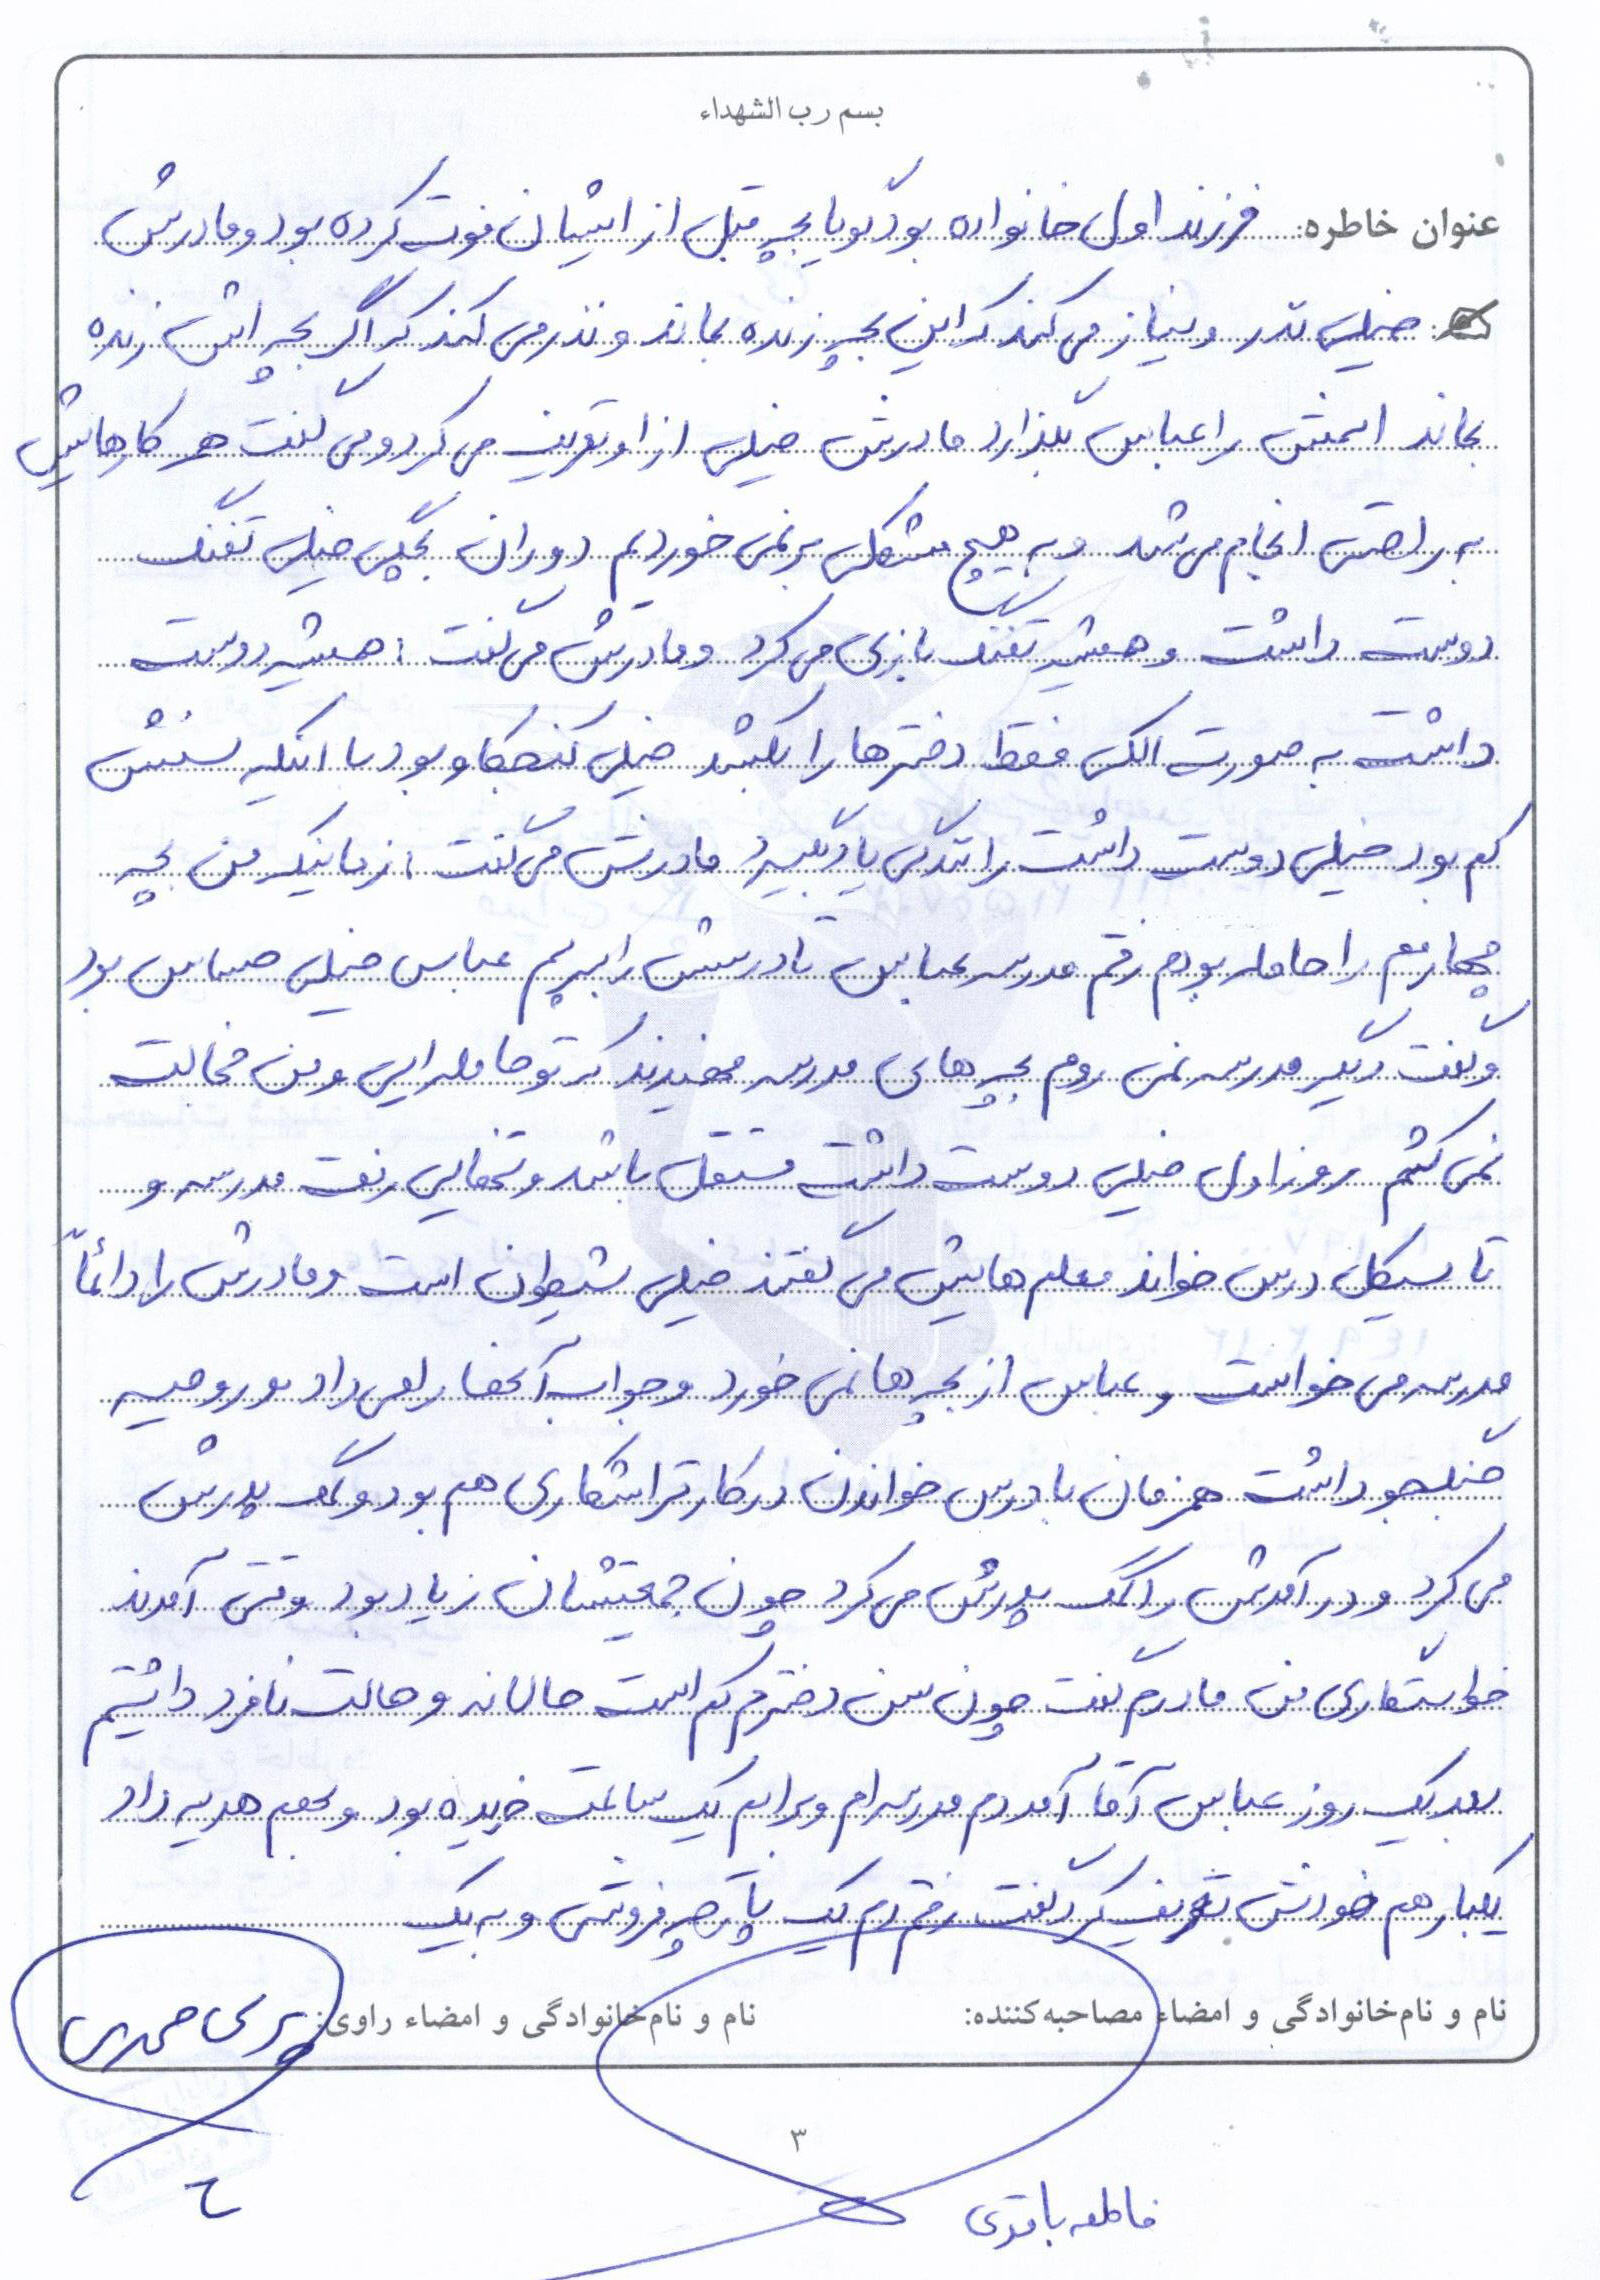 بسم رب الشهداء
عنوان خاطره: فرزند اول خانواده بود گویا بچه قبل از ایشان فوت کرده بود و مادرش
خیلی نذر و نیاز می کند که این بچه زنده بماند و نذر می کند که اگر بچه اش زنده
بماند اسمش را عباس بگذارد مادرش خیلی از او تعریف می کرد و می گفت هر کارهایش
به راحتی انجام می شد و به هیچ مشکلی بر نمی خوردیم دوران بچگی خیلی تفنگ
دوست داشت و همیشه تفنگ بازی می کرد و مادرش می گفت : همیشه دوست
داشت به صورت الکی فقط دخترها را بکشد خیلی کنجکاو بود با اینکه سنش
کم بود خیلی دوست داشت رانندگی یاد بگیرد مادرش می گفت : زمانیکه من بچه
چهارمم را حامله بودم رفتم مدرسه عباس تا درسش را بپرسم عباس خیلی حساس بود
و گفت دیگر مدرسه نمی روم بچه های مدرسه میخندند که تو حامله ایی و من خجالت
نمی کشم روز اول خیلی دوست داشت مستقل باشد و تنهایی رفت مدرسه و
تا سیکل درس خواند معلم هایش می گفتند خیلی شیطون است و مادرش را دائماً
مدرسه می خواست و عباس از بچه ها نمی خورد و جواب آنها را می داد و روحیه
جنگجو داشت همزمان با درس خواندن در کار تراشکاری هم بود و کمک پدرش
می کرد و درآمدش را کمک پدرش می کرد چون جمعیتشان زیاد بود وقتی آمدند
خواستگاری من مادرم گفت چون سن دخترم کم است حالا نه و حالت نامزد داشتیم
بعد یک روز عباس آقا آمد دم مدرسه ام و برایم یک ساعت خریده بود و بهم هدیه داد
یکبار هم خودش تعریف کرد گفت رفتم دم یک پارچه فروشی و به یک
نام و نام‌خانوادگی و امضاء مصاحبه‌کننده:
نام و نام‌خانوادگی و امضاء راوی:
۳
فاطمه باقری